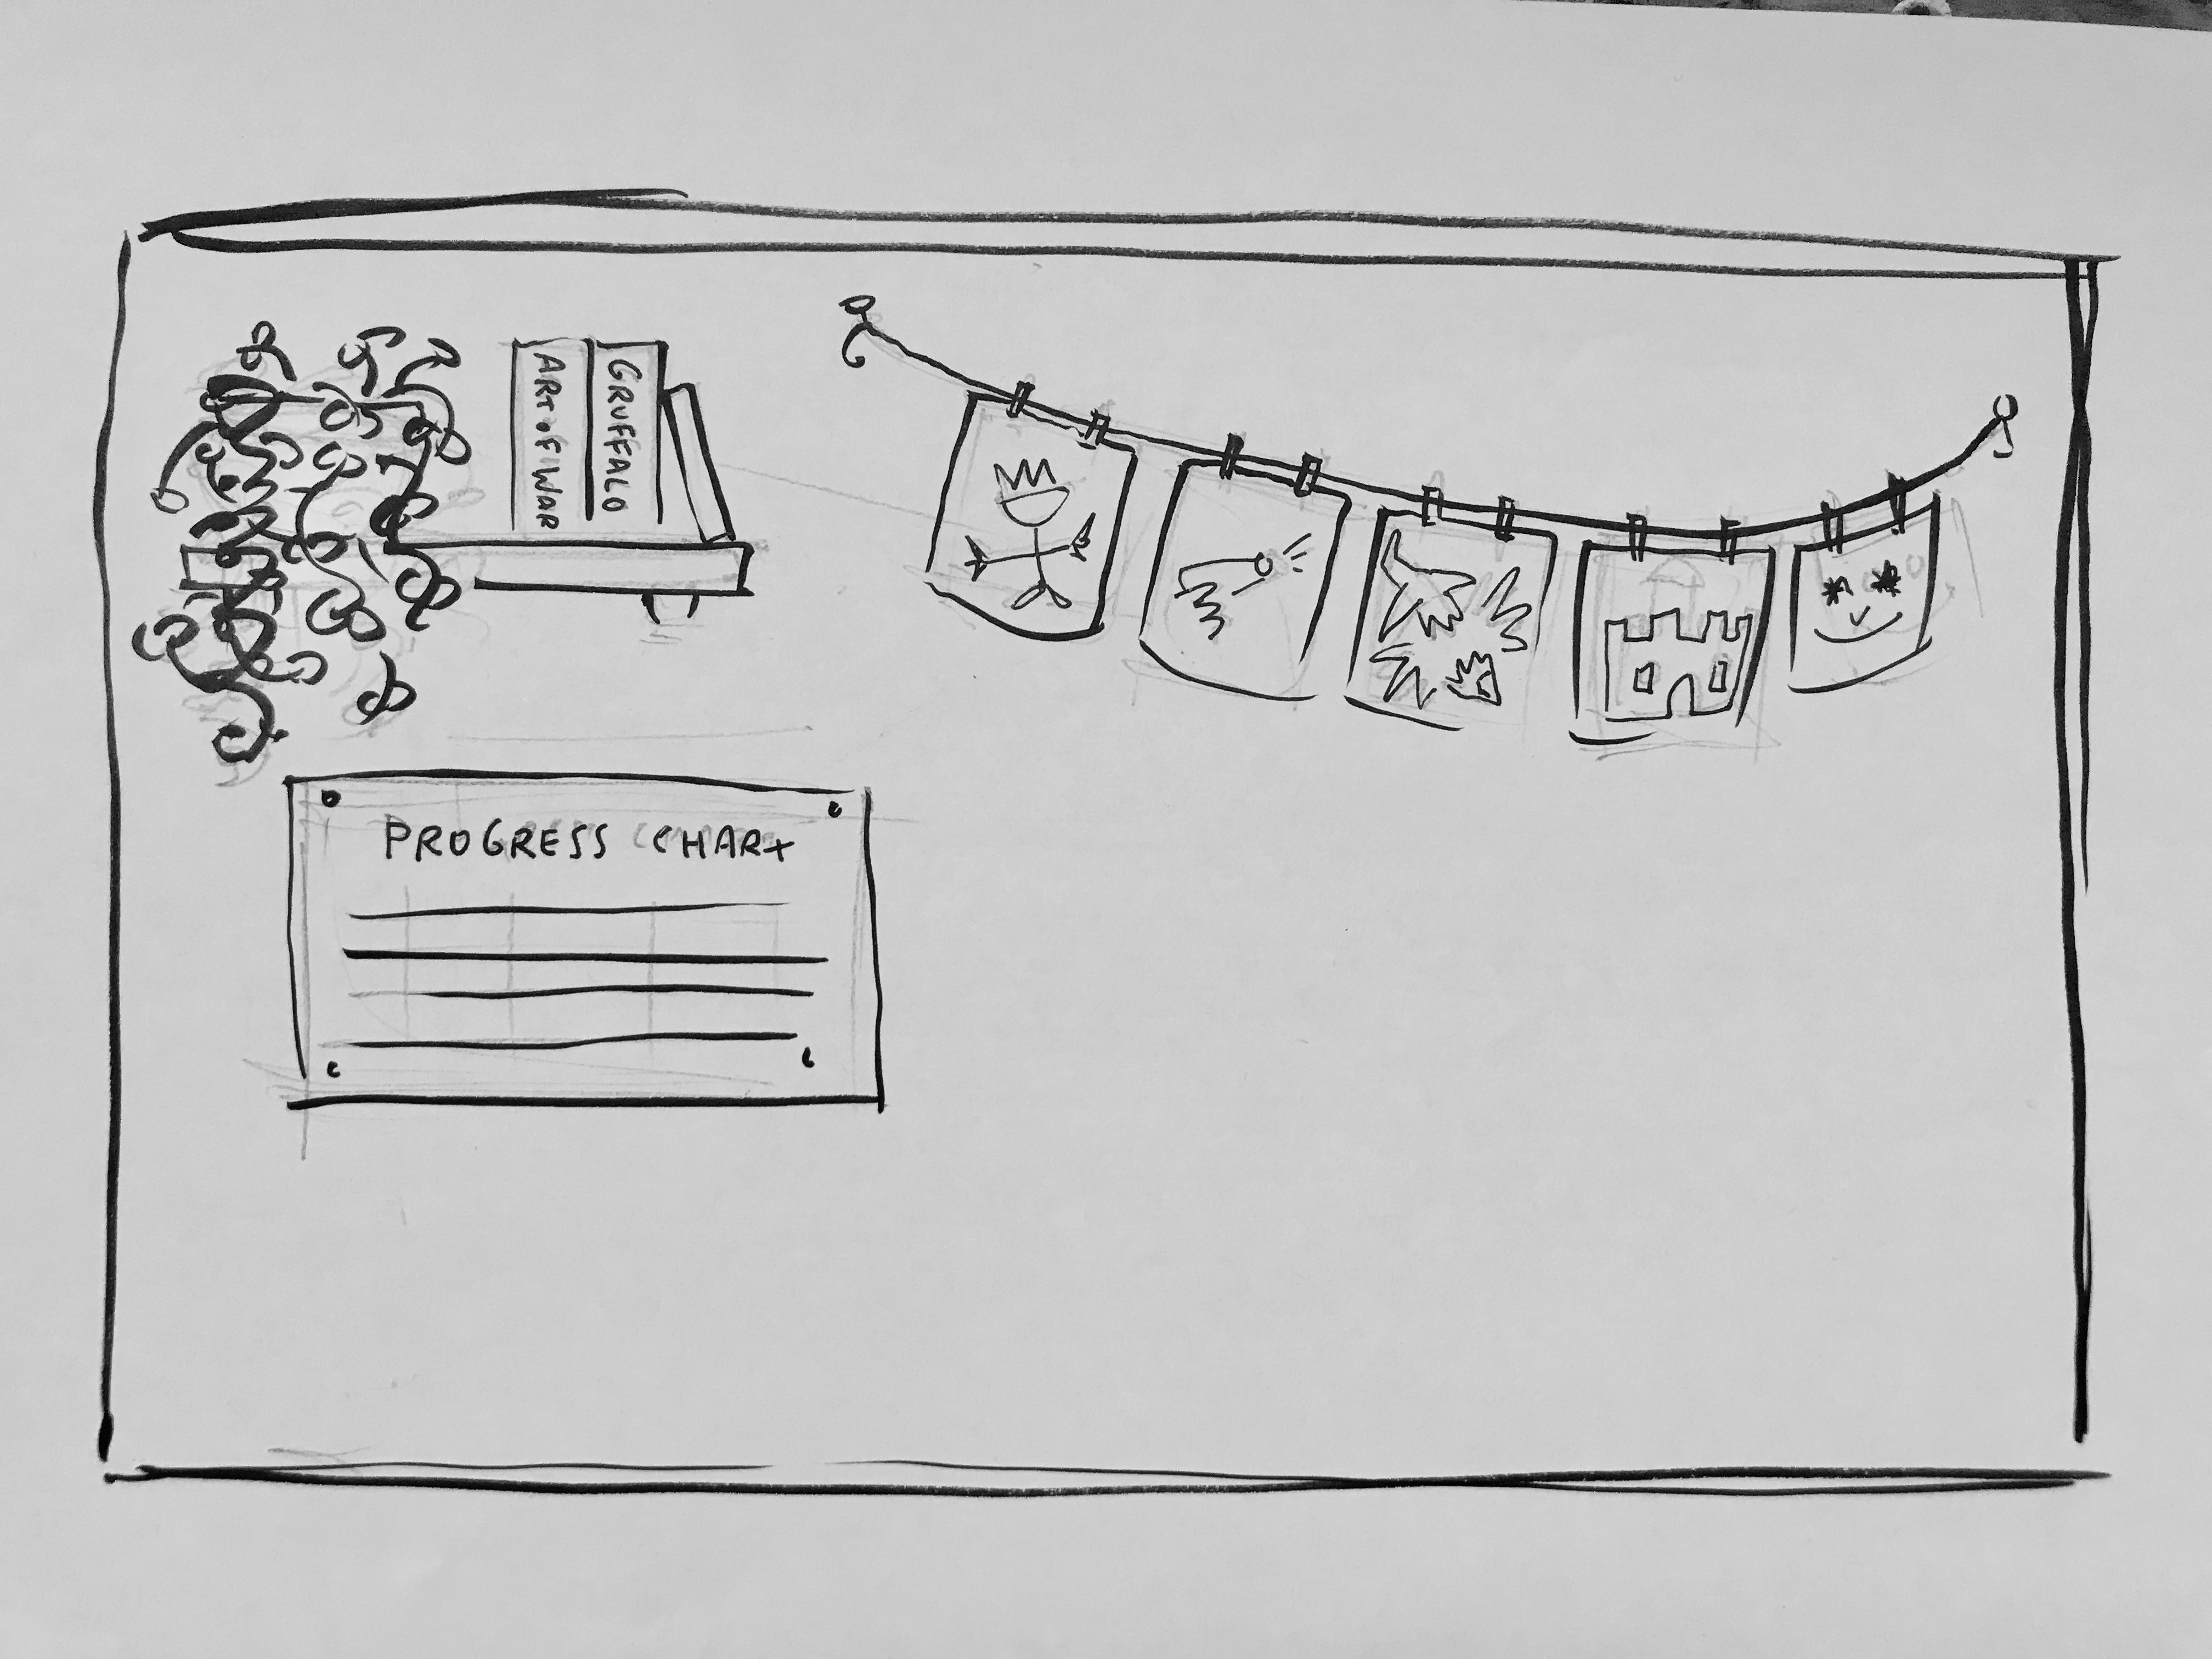 ART OF WAR
GRUFFALO
PROGRESS CHART